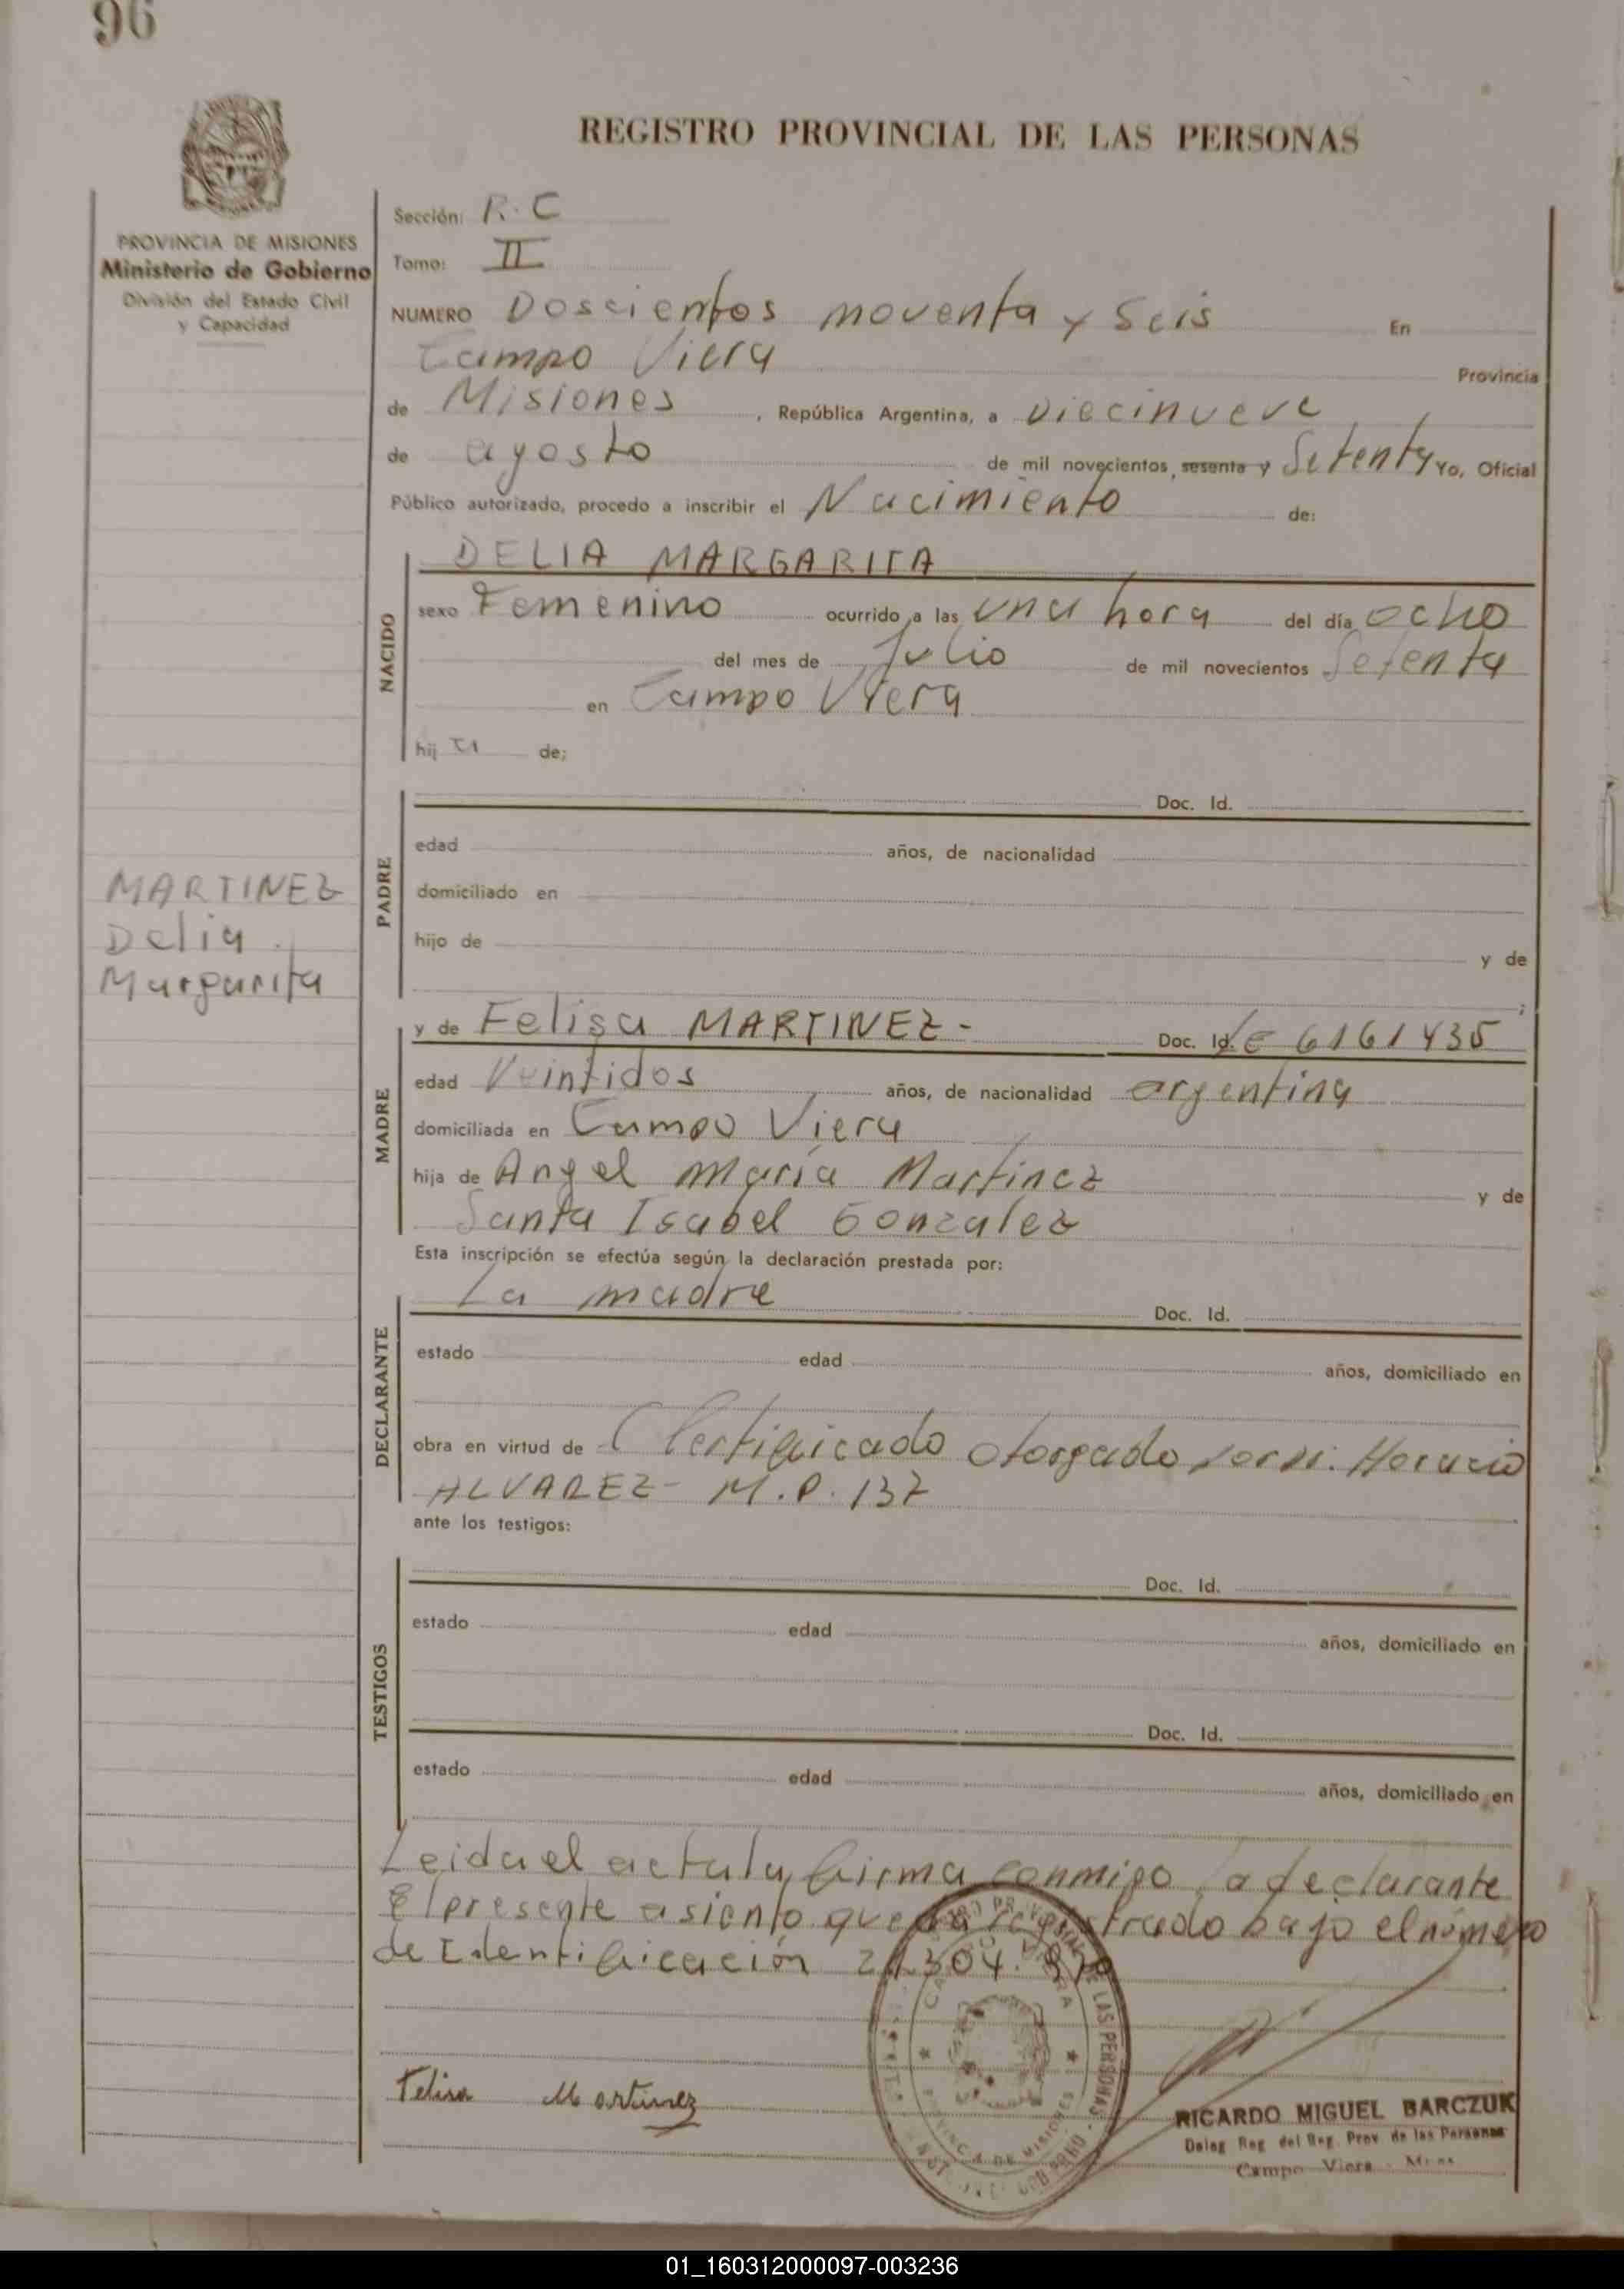 96
REGISTRO PROVINCIAL DE LAS PERSONAS
PROVINCIA DE MISIONES
Ministerio de Gobierno
División del Estado Civil
y Capacidad
Sección: R.C
Tomo: II
NUMERO Doscientos noventa y Seis En
Campo Viera Provincia
de Misiones, República Argentina, a Diecinueve
de agosto de mil novecientos, sesenta y Setenta Yo, Oficial
Público autorizado, procedo a inscribir el Nacimiento de:
NACIDO
DELIA MARGARITA
sexo Femenino ocurrido a las una hora del día ocho
del mes de Julio de mil novecientos Setenta
en Campo Viera
hij a de;
PADRE
Doc. Id.
edad años, de nacionalidad
domiciliado en
hijo de y de
;
MARTINEZ
Delia
Margarita
MADRE
y de Felisa MARTINEZ- Doc. Id. LC 6161435
edad Veintidos años, de nacionalidad argentina
domiciliada en Campo Viera
hija de Angel María Martinez y de
Santa Isabel Gonzalez
Esta inscripción se efectúa según la declaración prestada por:
DECLARANTE
La madre Doc. Id.
estado edad años, domiciliado en
obra en virtud de Certificado otorgado por Horacio
ALVAREZ- M.P. 137
ante los testigos:
TESTIGOS
Doc. Id.
estado edad años, domiciliado en
Doc. Id.
estado edad años, domiciliado en
Leida el acta la firma conmigo la declarante
El presente asiento queda registrado bajo el número
de Identificación 21.304.
LAS PERSONAS
PROVINCIA DE MISIONES
Felisa Martinez
RICARDO MIGUEL BARCZUK
Deleg Reg del Reg. Prov. de las Personas
Campo Viera - Mnes
01_160312000097-003236